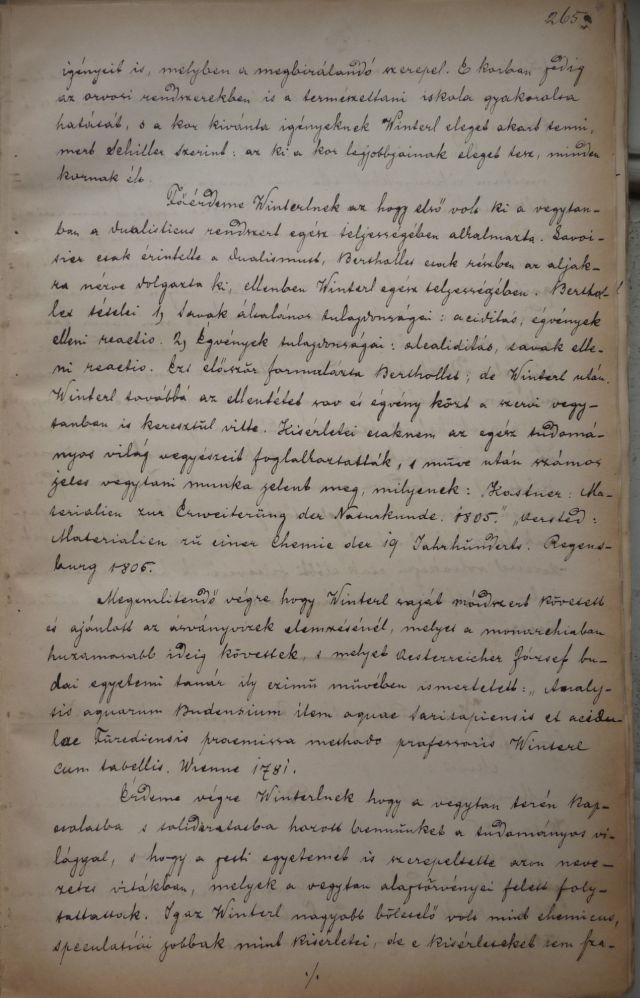 265
igényeit is, melyben a megbirálandó szerepel. E korban pedig
az orvosi rendszerekben is a természettani iskola gyakorolta
hatását, s a kor kivánta igényeknek Winterl eleget akart tenni,
mert Schiller szerint: az ki a kor legjobbjainak eleget tesz, minden
kornak élt.
Főérdeme Winterlnek az hogy első volt ki a vegytan-
ban a dualisticus rendszert egész teljességében alkalmazta. Lavoi-
sier csak érintette a dualismust, Berthollet csak részben az aljak-
ra nézve dolgozta ki, ellenben Winterl egész teljességében. Berthol-
let tételei 1, Savak általános tulajdonságai: aciditás, égvények
elleni reactio. 2, Égvények tulajdonságai: alcaliditás, savak elle-
ni reactio. Ezt először formulázta Berthollet; de Winterl után.
Winterl továbbá az ellentétet sav és égvény közt a szervi vegy-
tanban is keresztül vitte. Kisérletei csaknem az egész tudomá-
nyos világ vegyészeit foglalkoztatták, s műve után számos
jeles vegytani munka jelent meg, milyenek: Kastner: Ma-
terialien zur Erweiterüng der Naturkunde. 1805." „Oersted:
Materialien zü einer Chemie der 19 Jahrhünderts. Regens-
burg 1806.
Megemlitendő végre hogy Winterl saját módszert követett
és ajánlott az ásványvizek elemzésénél, melyet a monarchiában
huzamosabb ideig követtek, s melyet Oesterreicher József bu-
dai egyetemi tanár ily czimü művében ismertetett: „Analy-
sis aquarum Budensium item aquae
 et acidu-
lae Fürediensis praemissa methodo professoris Winterl
cum tabellis. Vienne 1781.
Érdeme végre Winterlnek hogy a vegytan terén kap-
csolatba s solidaritásba hozott bennünket a tudományos vi-
lággal, s hogy a pesti egyetemet is szerepeltette azon neve-
zetes vitákban, melyek a vegytan alaptörvényei felett foly-
tattattak. Igaz Winterl nagyobb bölcselő volt mint chemicus,
speculatiói jobbak mint kisérletei, de e kisérleteket sem
./.